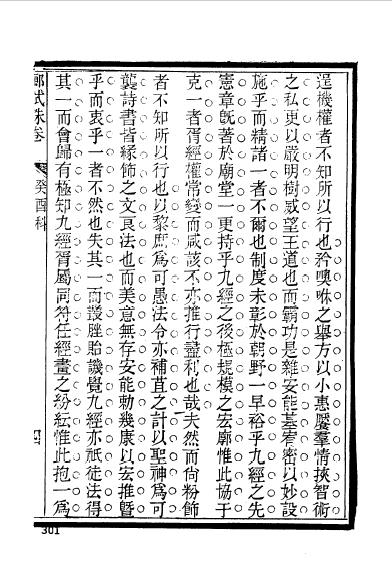 逞機權者不知所以行也矜噢咻之舉方以小惠饜羣情挾智術
之私更以嚴明樹威望王道也而霸功是雜安能基宥密以妙設
施乎而精諸一者不爾也制度未彰於朝野一早裕乎九經之先
憲章旣著於廟堂一更持乎九經之後極規模之宏廓惟此協于
克一者胥經權常變而咸該不亦推行盡利也哉夫然而尙粉飾
者不知所以行也以黎庶爲可愚法令亦補苴之計以聖神爲可
襲詩書皆緣飾之文良法也而美意無存安能勅幾康以宏推曁
乎而衷乎一者不然也失其一而叢脞貽譏覺九經亦祇徒法得
其一而會歸有極知九經胥屬同符任經畫之紛紜惟此抱一爲
鄉試硃卷
癸酉科
四
301